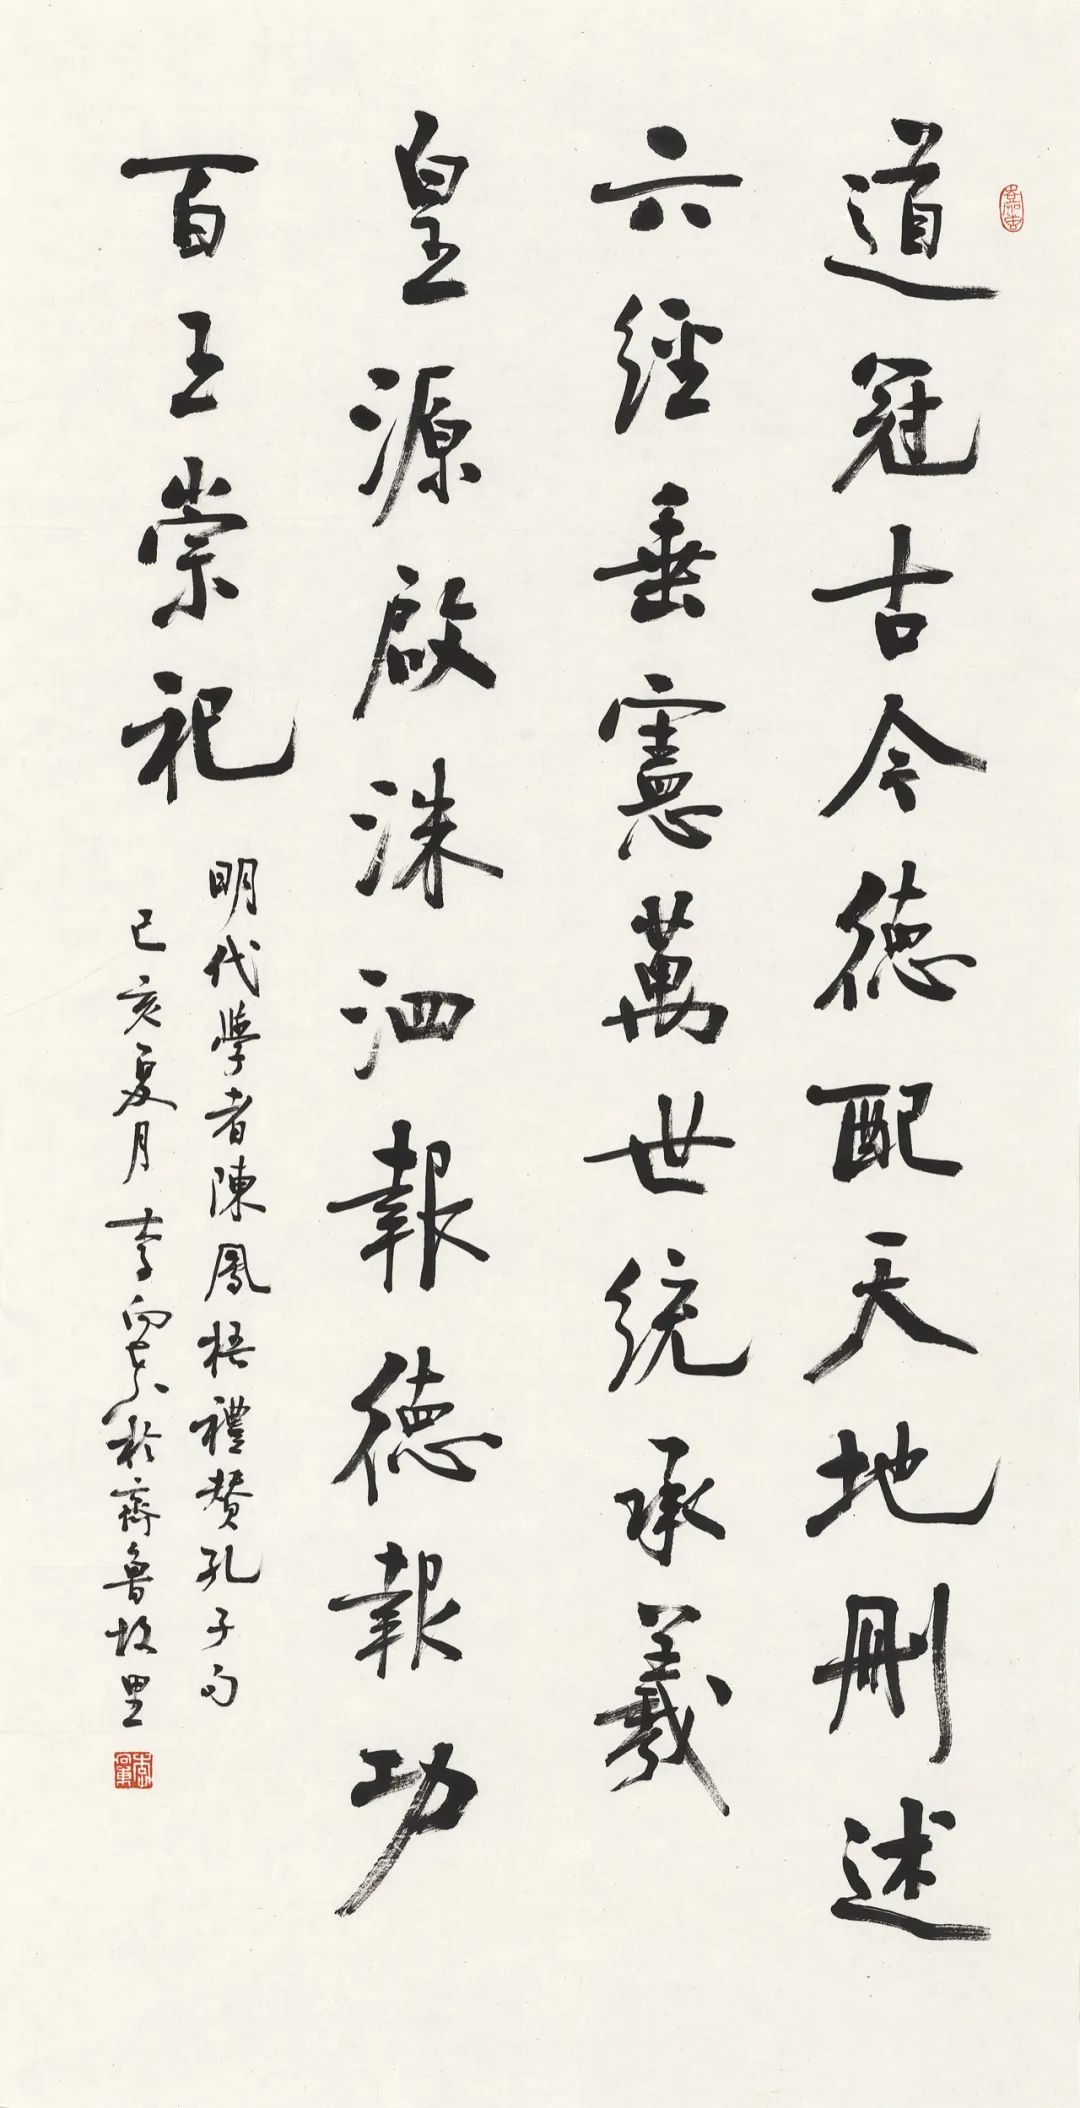 道冠古今德配天地刪述
六經垂憲萬世統承羲
皇源啟洙泗報德報功
百王崇祀
明代學者陳鳳梧禮贊孔子句
己亥夏月李向東於齊魯故里